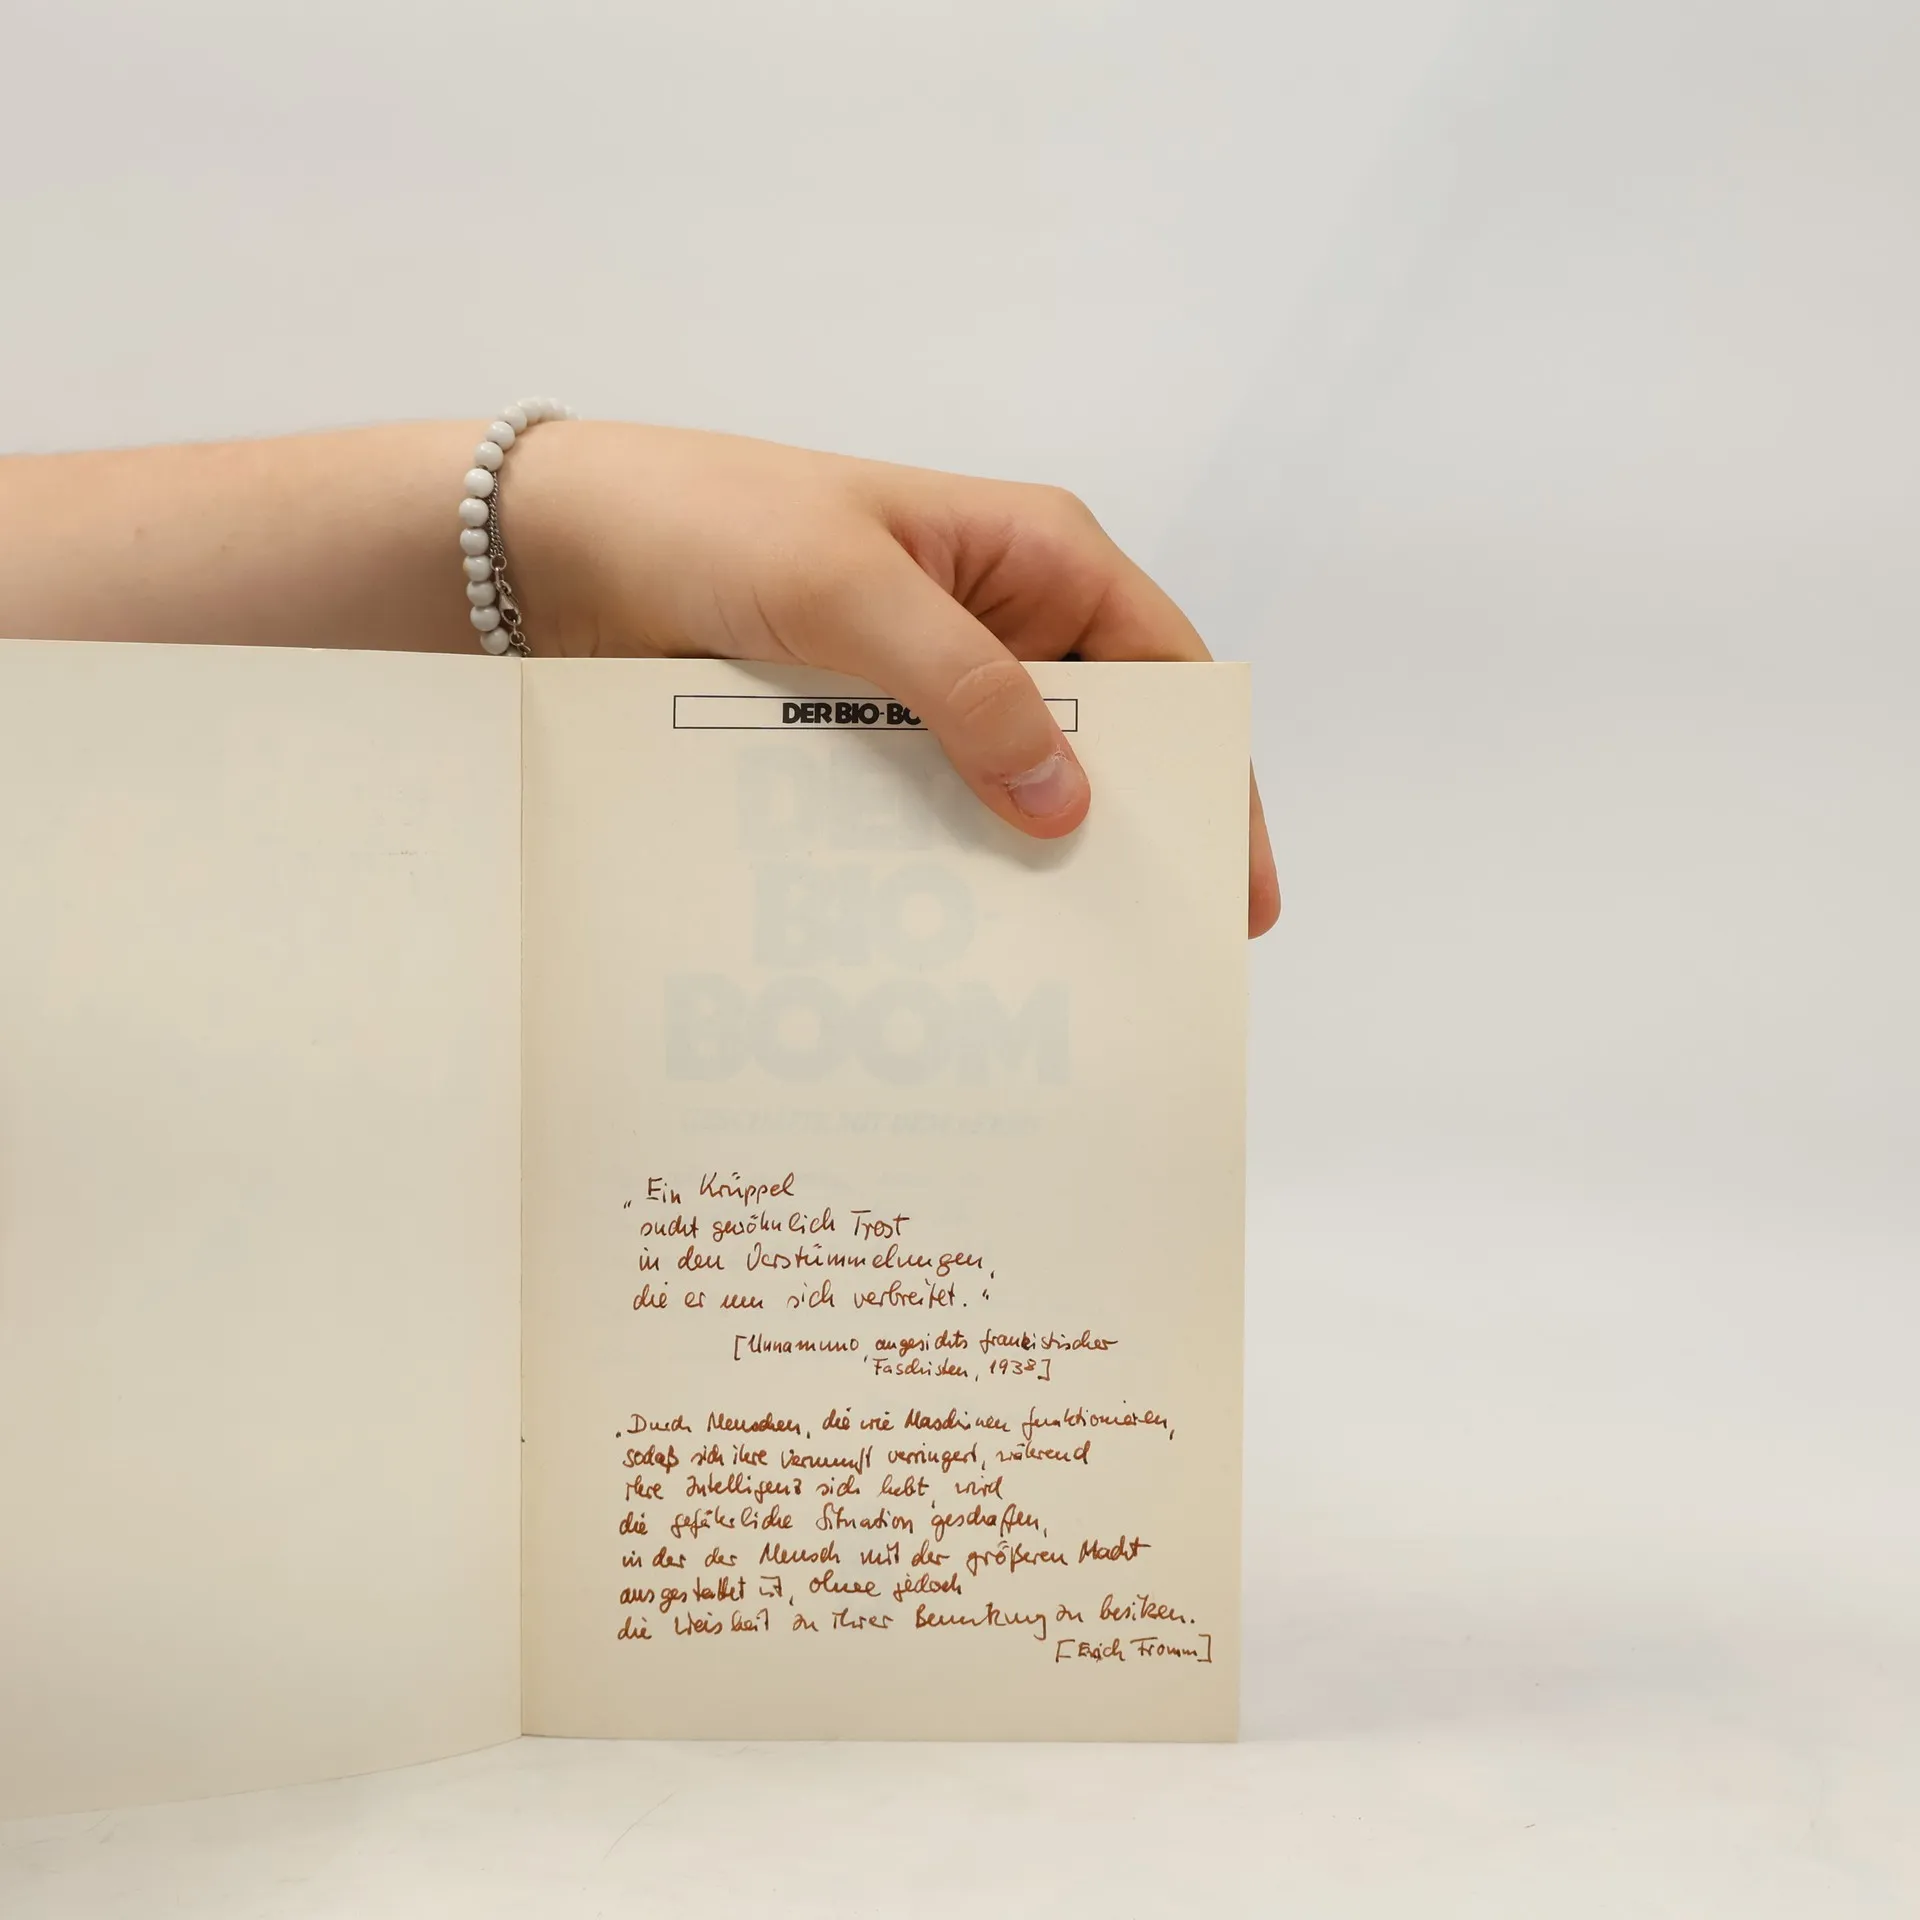 DER BIO-BO
„Ein Krüppel
sucht gewöhnlich Trost
in den Verstümmelungen,
die er um sich verbreitet."
[Unnamuno, angesichts frankistischer
Faschisten, 1938]
„Durch Menschen, die wie Maschinen funktionieren,
sodaß sich ihre Vernunft verringert, während
ihre Intelligenz sich hebt, wird
die gefährliche Situation geschaffen,
in der der Mensch mit der größeren Macht
ausgestattet ist, ohne jedoch
die Weisheit zu ihrer Benutzung zu besitzen.
[Erich Fromm]